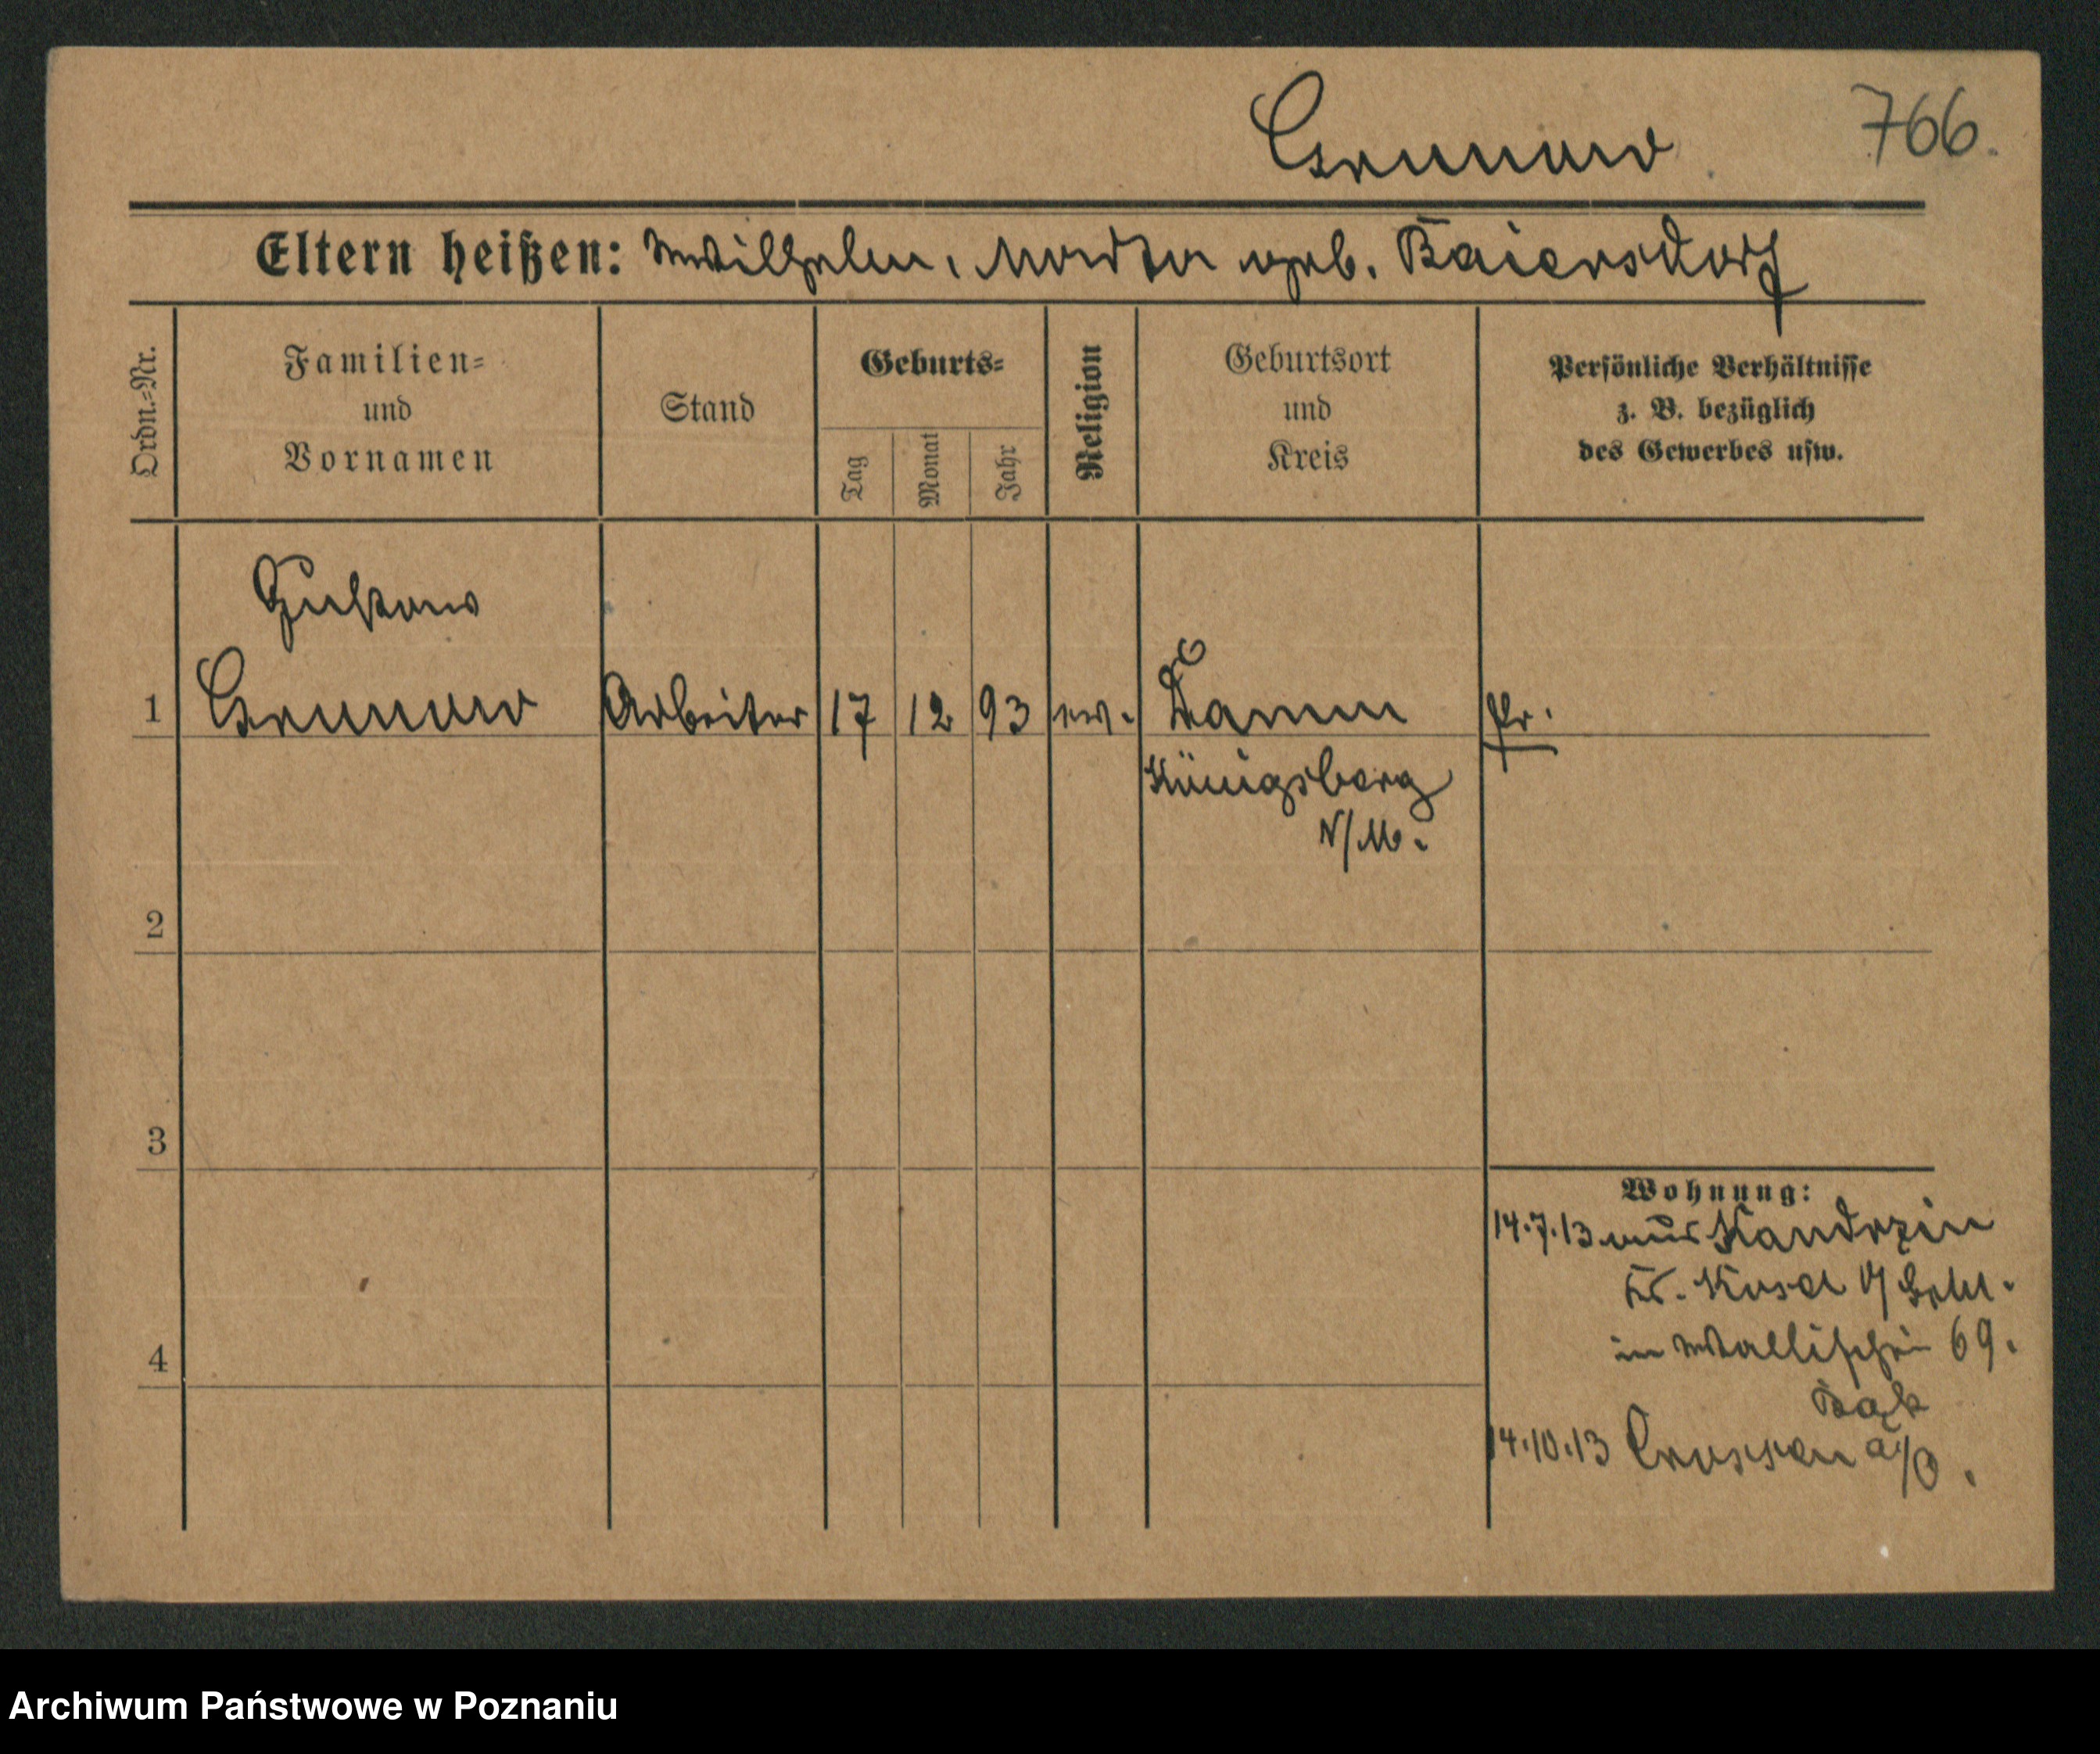 Grunow
766.
Eltern heißen: Wilhelm, Martha geb. Baiersdorf
Ordn.=Nr.
Familien=
und
Vornamen
Stand
Geburts=
Tag
Monat
Jahr
Religion
Geburtsort
und
Kreis
Persönliche Verhältnisse
z. B. bezüglich
des Gewerbes usw.
Gustav
1 Grunow Arbeiter 17 12 93 ev. Damm Pr.
Königsberg
N/M.
2
3
Wohnung:
14.7.13 aus Kandrzin
Kr. Kosel
in Wallischei 69.
4
14.10.13 Crossen a/O.
Archiwum Państwowe w Poznaniu